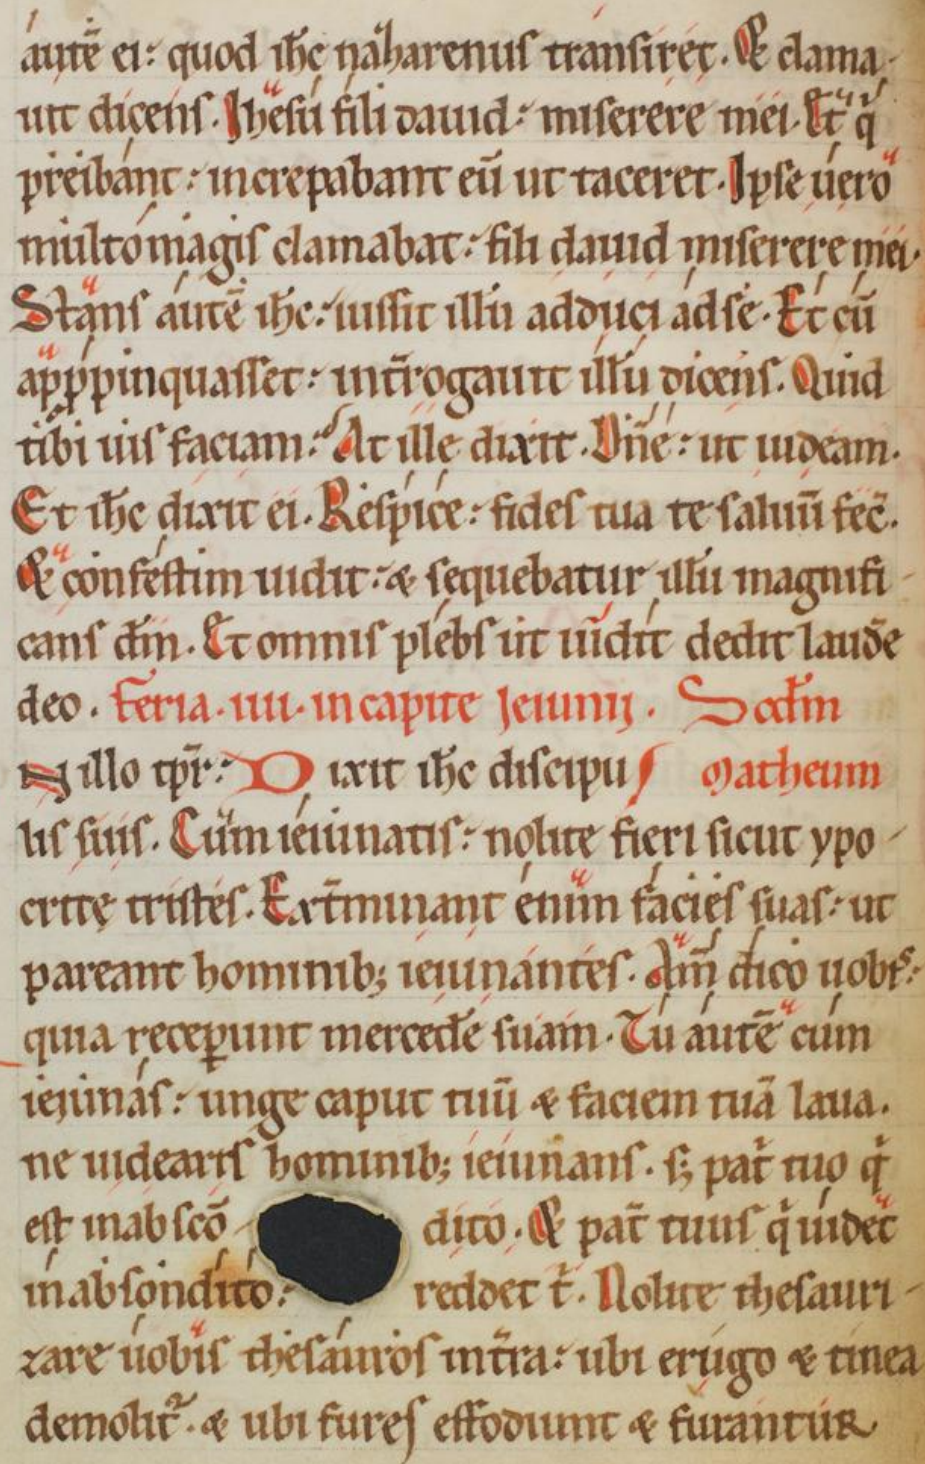 autē ei: quod ihc naharenus transiret. & clama-
uit dicens. Jhesu fili dauid: miserere mei. Et q̇
preibant: increpabant eū ut taceret. Ipse uero
multo magis clamabat: fili dauid miserere mei.
Stans autē ihc: iussit illū adduci ad se. Et cū
appropinquasset: int̄rogauit illū dicens. Quid
tibi uis faciam: At ille dixit. Dn̄e: ut uideam.
Et ihc dixit ei. Respice: fides tua te saluū fec̄.
& confestim uidit: & sequebatur illū magnifi-
cans dm̄. Et omnis plebs ut uidit dedit laudē
deo. Feria. iiii. in capite Jeiunij. Scdm̄
IN illo tpr̄: Dixit ihc discipu Matheum
lis suis. Cum ieiunatis: nolite fieri sicut ypo-
critę tristes. Ext̄minant enim facies suas: ut
pareant hominib; ieiunantes. Am̄ dico uobis:
quia receperunt mercedē suam. Tu autē cum
ieiunas: unge caput tuū & faciem tuā laua.
ne uidearis hominib; ieiunans. s; pat̄ tuo q̇
est in absco- dito. & pat̄ tuus q̇ uidet
in absondito: reddet t̄. Nolite thesauri-
zare uobis thesauros in t̄ra: ubi erugo & tinea
demolit᷑. & ubi fures effodiunt & furantur